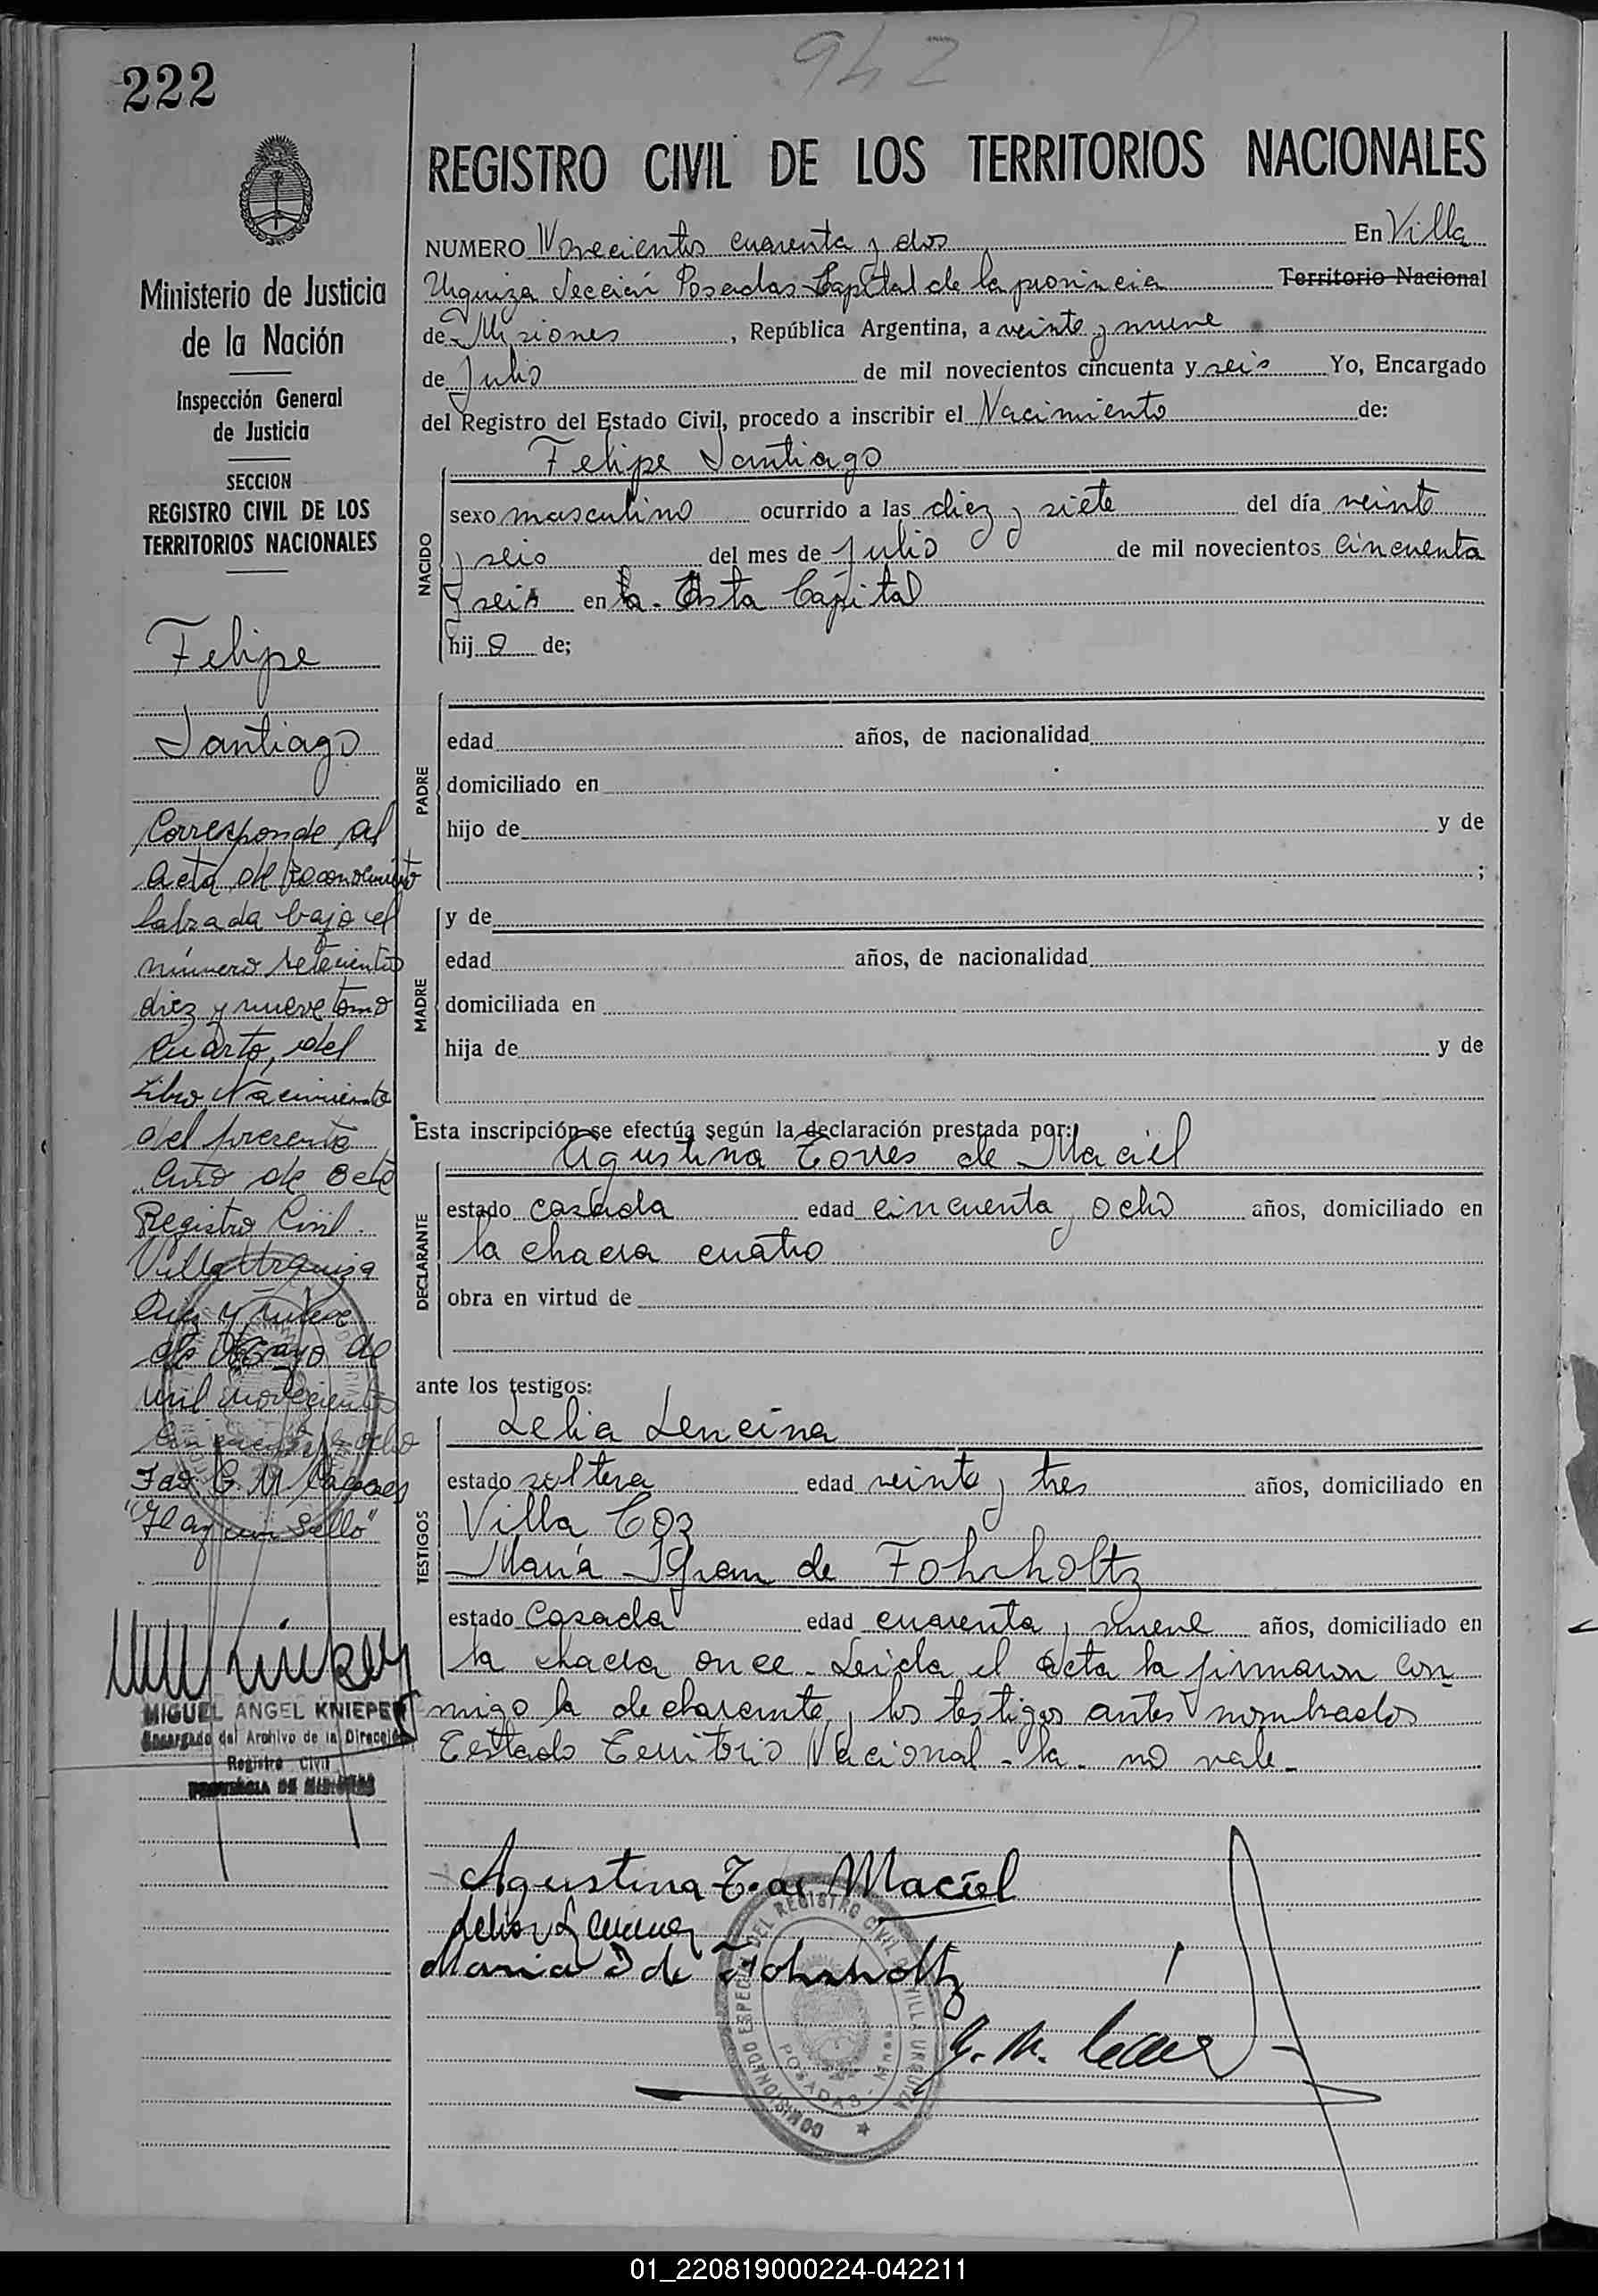 942
222
REGISTRO CIVIL DE LOS TERRITORIOS NACIONALES
NUMERO Novecientos cuarenta y dos En Villa
Urquiza Sección Posadas Capital de la provincia Territorio Nacional
de Misiones, República Argentina, a veinte y nueve
de Julio de mil novecientos cincuenta y seis Yo, Encargado
del Registro del Estado Civil, procedo a inscribir el Nacimiento de:
Felipe Santiago
NACIDO
sexo masculino ocurrido a las diez y siete del día veinte
y seis del mes de Julio de mil novecientos cincuenta
y seis en la. Esta Capital
hijo de;
PADRE
edad años, de nacionalidad
domiciliado en
hijo de y de
;
MADRE
y de
edad años, de nacionalidad
domiciliada en
hija de y de
Esta inscripción se efectúa según la declaración prestada por:
Agustina Torres de Maciel
DECLARANTE
estado casada edad cincuenta y ocho años, domiciliado en
la chacra cuatro
obra en virtud de
ante los testigos:
TESTIGOS
Lelia Lencina
estado soltera edad veinte y tres años, domiciliado en
Villa Coz
María de Fohrholtz
estado Casada edad cuarenta y nueve años, domiciliado en
la chacra once. Leída el acta la firmaron con
migo la declarante y los testigos antes nombrados
Testado Territorio Nacional - la - no vale -
Agustina T. de Maciel
Lelia Lencina
Maria I de Fohrholtz
G. M.
DEL REGISTRO CIVIL VILLA URQUIZA
POSADAS
Ministerio de Justicia
de la Nación
Inspección General
de Justicia
SECCION
REGISTRO CIVIL DE LOS
TERRITORIOS NACIONALES
Felipe
Santiago
Corresponde al
acta de Reconocimiento
labrada bajo el
número setecientos
diez y nueve tomo
cuarto, del
Libro Nacimiento
del presente
año de este
Registro Civil.
Villa Urquiza
Diez y nueve
de Mayo de
mil novecientos
cincuenta y ocho
Fdo. G. M.
"Hay un Sello"
MIGUEL ANGEL KNIEPER
Encargado del Archivo de la Dirección
Registro Civil
PROVINCIA DE MISIONES
01_220819000224-042211